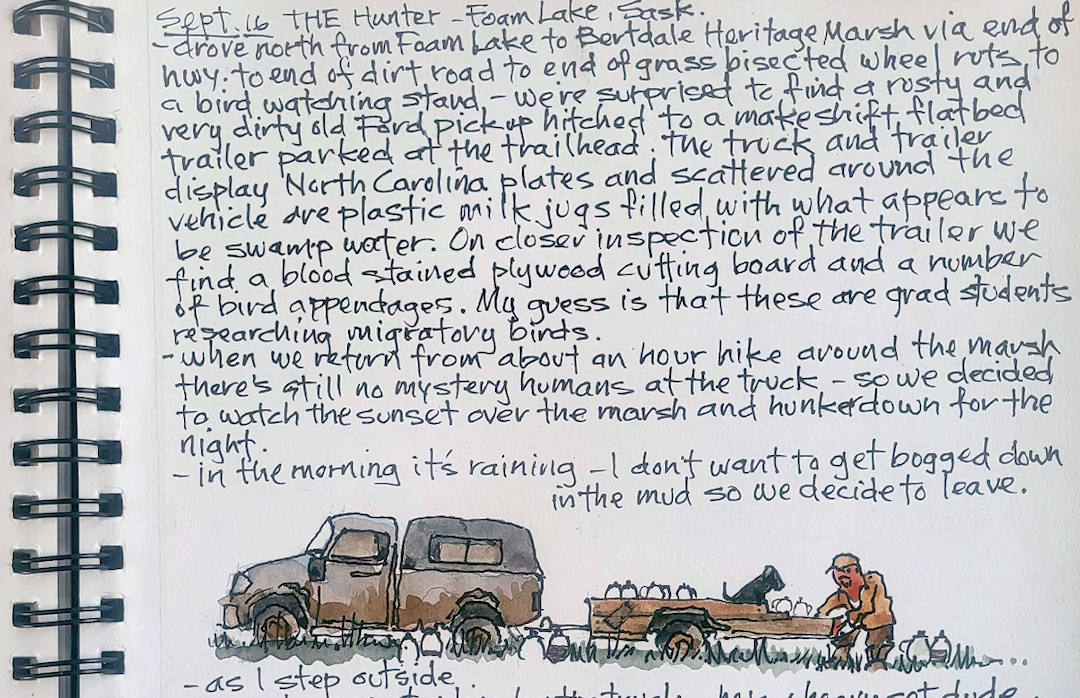 Sept. 16 THE Hunter - Foam Lake, Sask.
- drove north from Foam Lake to Bertdale Heritage Marsh via end of
hwy. to end of dirt road to end of grass bisected wheel ruts, to
a bird watching stand, - we're surprised to find a rusty and
very dirty old Ford pickup hitched to a makeshift flatbed
trailer parked at the trailhead. The truck and trailer
display North Carolina plates and scattered around the
vehicle are plastic milk jugs filled with what appears to
be swamp water. On closer inspection of the trailer we
find a blood stained plywood cutting board and a number
of bird appendages. My guess is that these are grad students
researching migratory birds.
- when we return from about an hour hike around the marsh
there's still no mystery humans at the truck - so we decided
to watch the sunset over the marsh and hunkerdown for the
night.
- in the morning it's raining - I don't want to get bogged down
in the mud so we decide to leave.
- as I step outside